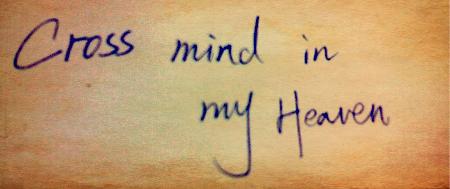 Cross mind in
my Heaven